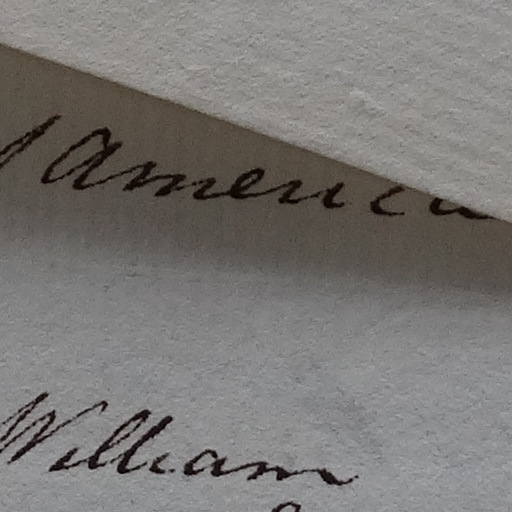 America
William